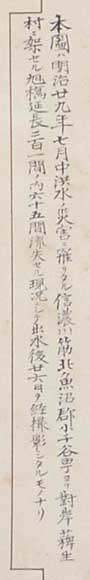 本圖ハ明治廿九年七月中洪水ノ災害ニ罹リタル信濃川筋北魚沼郡小千谷町ヨリ對岸薭生
村ニ架セル旭橋延長三百一間ノ内六十五間流失セル現況ニシテ出水後廿六日ヲ経撮影シタルモノナリ